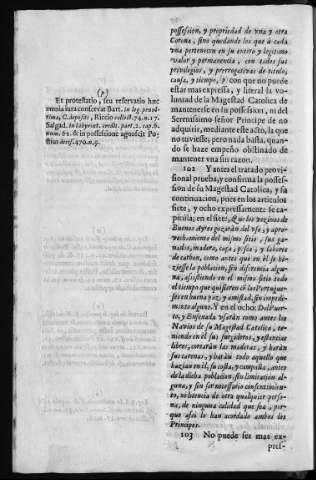 (p)
Et protestatio, seu reservatio hæc
omnia iura conservat Bart. in leg. 
 C. deposit. Riccio collect. 74. n. 17.
Salgad. in labyrint. credit. part. 2. cap. 6.
num. 62. & in possessione 
 decis. 470. n. 9.
possession, y propriedad de vna y otra
Corona, sino quedando los que à cada
vna pertenecen en su entero y legitimo
valor y permanencia, con todos sus
privilegios, y prerrogativas de titulo,
causa, y tiempo, p con que no puede
estar mas expressa, y literal la vo-
luntad de la Magestad Catolica de
mantenerse en la possession, ni del
Serenissimo señor Principe de no
adquirir, mediante este acto, la que
no tuviesse; pero nada basta, quan-
do se haze empeño obstinado de
mantener vna sin razon.
102 Y antes el tratado provi-
sional prueba, y confirma la posses-
sion de su Magestad Catolica, y su
continuacion, pues en los articulos
siete, y ocho expressamente se ca-
pitula; en el siete, Que los vezinos de
Buenos Ayres gozaràn del vso, y apro-
vechamiento del mismo sitio, sus ga-
nados, madera, caça, pesca, y labores
de carbon, como antes que en èl se hi-
ziesse la poblacion, sin diferencia algu-
na, assistiendo en el mismo sitio todo
el tiempo que quisieren cō los Portugue-
ses en buena paz, y amistad, sin impedi-
miento alguno. Y en el ocho: Del Puer-
to, y Ensenada vsaràn como antes los
Navios de su Magestad Catolica, te-
niendo en èl sus surgideros, y estancias
libres, cortaràn las maderas, y haràn
sus carenas, y haràn todo aquello que
hazian en èl, su costa, y campaña, antes
de la dicha poblacion, sin limitacion al-
guna, y sin ser necessario consentimien-
to, ni licencia de otra qualquier perso-
na, de ninguna calidad que sea, por-
que assi lo han acordado ambos dos
Principes.
103 No puede ser mas ex-
pres-